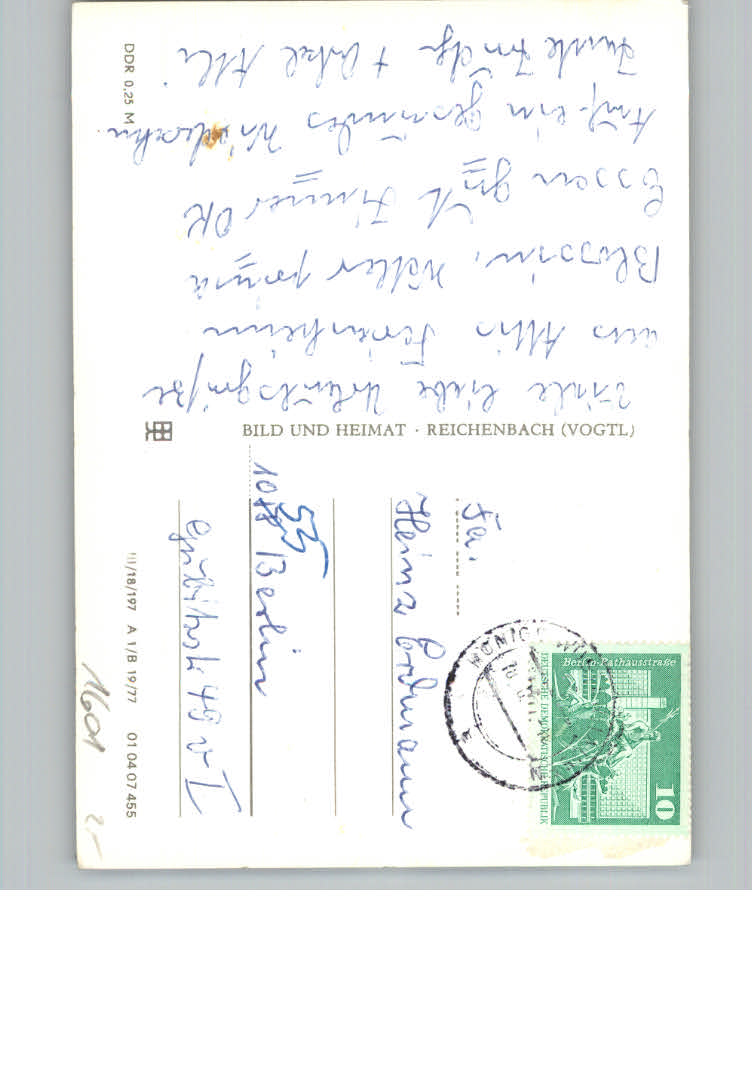 Viele liebe Urlaubsgrüße
aus Ferienheim
Blossin,
Essen gut Zimmer OK
Auf ein gesundes Wiedersehn.
Tante + Onkel
DDR 0,25 M
BILD UND HEIMAT · REICHENBACH (VOGTL)
III/18/197 A 1/B 19/77 01 04 07 455
Fa.
Heinz Erdmann
1055 Berlin
49 v I
Berlin-Rathausstraße
DEUTSCHE DEMOKRATISCHE REPUBLIK
10
1601
2,-